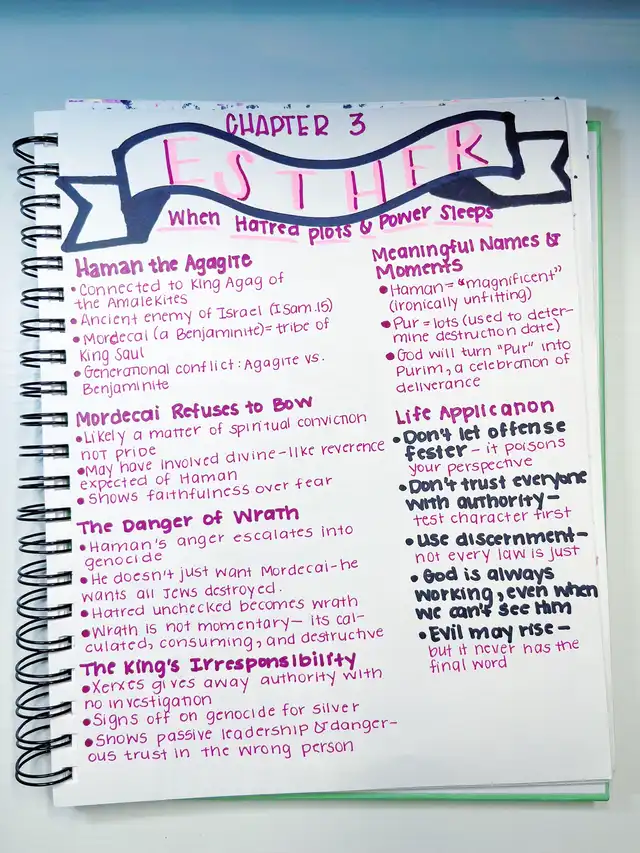 CHAPTER 3
ESTHER
When Hatred Plots & Power Sleeps
Haman the Agagite
• Connected to King Agag of
the Amalekites
• Ancient enemy of Israel (1 Sam. 15)
• Mordecai (a Benjaminite) = tribe of
King Saul
• Generational conflict: Agagite vs.
Benjaminite
Mordecai Refuses to Bow
• Likely a matter of spiritual conviction
not pride
• May have involved divine-like reverence
expected of Haman
• Shows faithfulness over fear
The Danger of Wrath
• Haman's anger escalates into
genocide
• He doesn't just want Mordecai-he
wants all Jews destroyed.
• Hatred unchecked becomes wrath
• Wrath is not momentary— its cal-
culated, consuming, and destructive
The King's Irresponsibility
• Xerxes gives away authority with
no investigation
• Signs off on genocide for silver
• Shows passive leadership & danger-
ous trust in the wrong person
Meaningful Names &
Moments
• Haman = "magnificent"
(ironically unfitting)
• Pur = lots (used to deter-
mine destruction date)
• God will turn "Pur" into
Purim, a celebration of
deliverance
Life Application
• Don't let offense
fester – it poisons
your perspective
• Don't trust everyone
with authority—
test character first
• use discernment—
not every law is just
• God is always
working, even when
we can't see Him
• Evil may rise—
but it never has the
final word